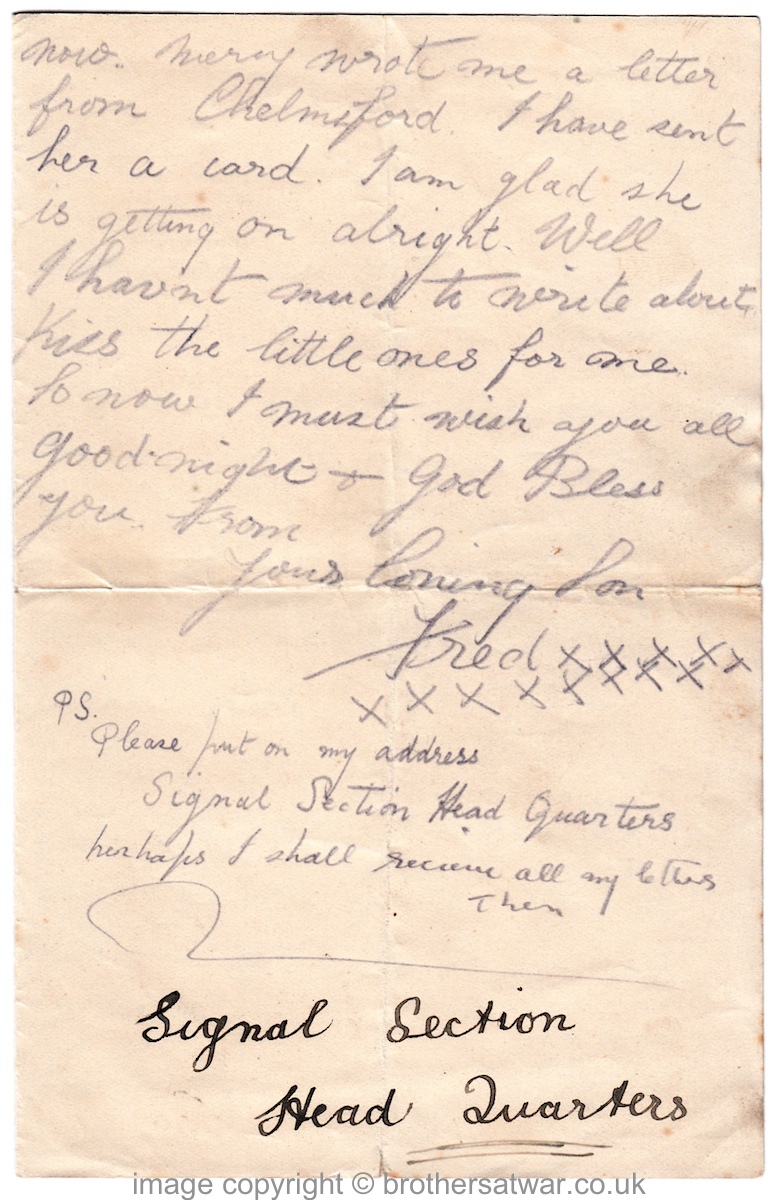 now. Mercy wrote me a letter
from Chelmsford. I have sent
her a card. I am glad she
is getting on alright. Well
I havnt much to write about.
Kiss the little ones for me.
So now I must wish you all
good-night & God Bless
you. From
Your loving Son
Fred x x x x x
x x x x x x x x
PS.
Please put on my address
Signal Section Head Quarters
perhaps I shall recieve all my letters
then
Signal Section
Head Quarters
image copyright © brothersatwar.co.uk